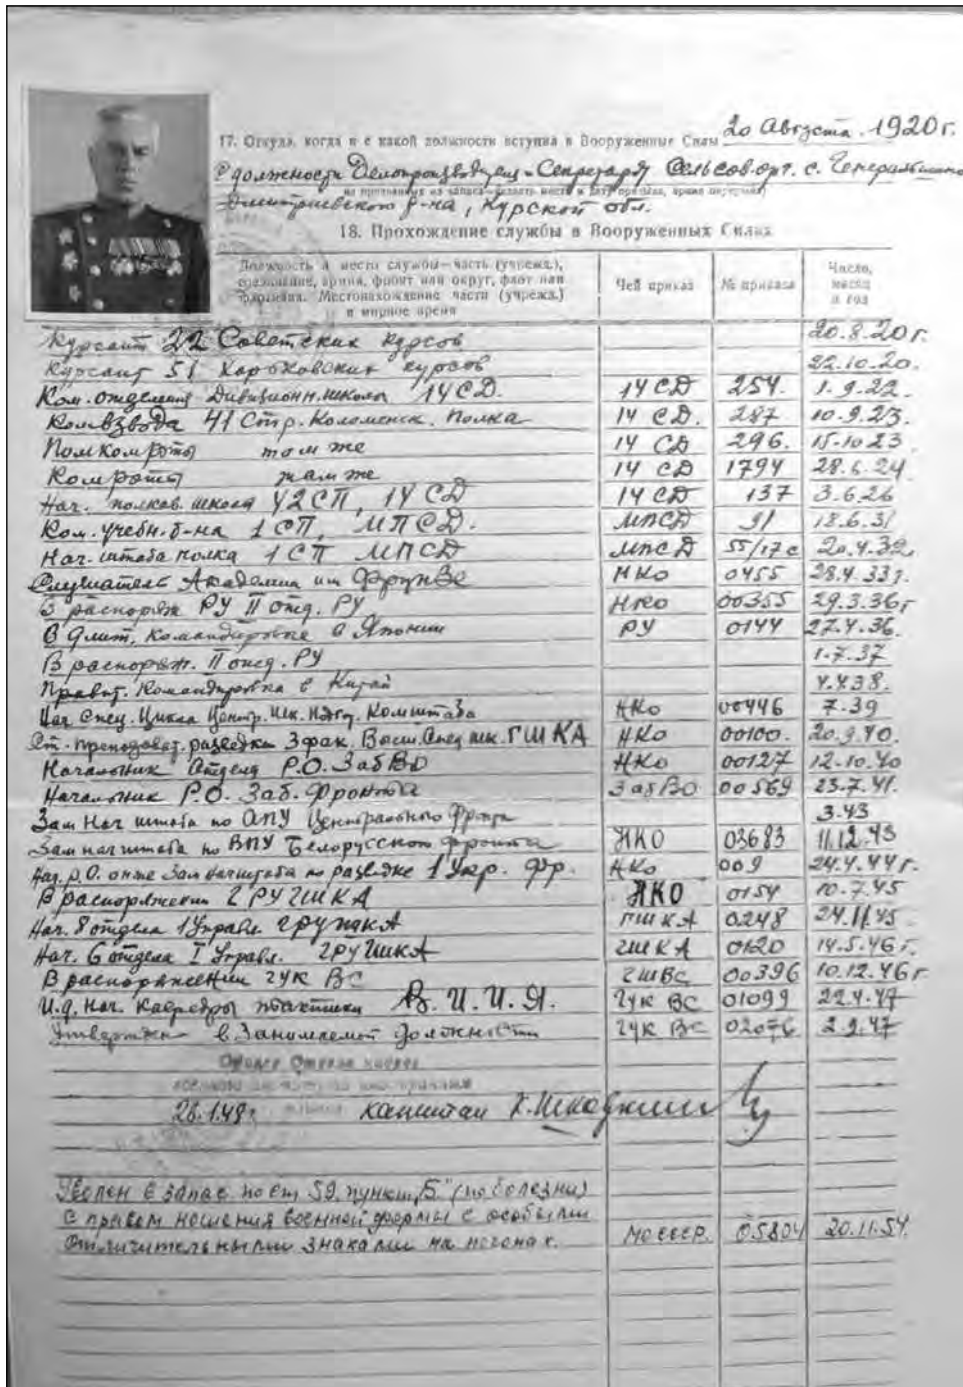 17. Откуда, когда и с какой должности вступил в Вооруженные Силы 20 Августа 1920 г.
С должности Делопроизводителя-Секретаря с.
Дмитриевского р-на, Курской обл.
18. Прохождение службы в Вооруженных Силах
Должность и место службы—часть (учрежд.), Чей приказ № приказа Число,
соединение, армия, фронт или округ, флот или месяц
флотилия. Местонахождение части (учрежд.) и год
в мирное время
Курсант 22 Советских курсов 20.8.20 г.
Курсант 51 Харьковских курсов 22.10.20.
Ком. отделения Дивизионн. школы 14 СД. 14 СД 254. 1.9.22.
Комвзвода 41 Стр. Коломенск. Полка 14 СД. 287 10.9.23.
Помкомроты там же 14 СД 296. 15.10.23
Комроты там же 14 СД 1794 28.6.24
Нач. полков. школы 42 СП, 14 СД 14 СД 137 3.6.26
Ком. учебн. б-на 1 СП, МПСД. МПСД 91 18.6.31
Нач. штаба полка 1 СП МПСД МПСД 55/17с 20.4.32.
Слушатель Академии им Фрунзе НКО 0455 28.4.33 г.
В распоряж РУ II отд. РУ НКО 00355 29.3.36 г
В длит. командировке в Японии РУ 0144 27.4.36.
В распоряж. II отд. РУ 1.7.37
Правит. Командировка в Китай 4.4.38.
Нач Спец. Цикла Центр. шк. подг. Комштаба НКО 00446 7.39
Ст. преподават. разведки 3 фак. Высш. Спец шк. ГШКА НКО 00100. 20.9.40.
Начальник Отдела Р.О. ЗабВО НКО 00127 12.10.40
Начальник Р.О. Заб. Фронта ЗабВО 00569 23.7.41.
Зам Нач штаба по ОПУ Центрального Фронта 3.43
Зам нач штаба по ВПУ Белорусского фронта НКО 03683 11.12.43
Нач. Р.О. он же Зам начштаба по разведке 1 Укр. фр. НКО 009 24.4.44 г.
В распоряжении ГРУ ГШКА НКО 0154 10.7.45
Нач. 8 отдела 1 Управл. ГРУ ГШКА ГШКА 0248 24.11.45.
Нач. 6 отдела I Управл. ГРУ ГШКА ГШКА 0120 14.5.46 г.
В распоряжении ГУК ВС ГШВС 00396 10.12.46 г
И.д. Нач. Кафедры тактики В.И.И.Я. ГУК ВС 01099 22.4.47
Утвержден в занимаемой должности ГУК ВС 02076 2.9.47
26.1.48 г. капитан
Уволен в запас по ст 59 пункт „Б" (по болезни)
с правом ношения военной формы с особыми
отличительными знаками на погонах. МО СССР. 05804 20.11.54.